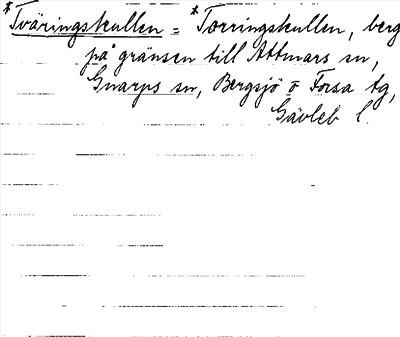 *Tväringskullen = *Torringskullen, berg
på gränsen till Attmars sn,
Gnarps sn, Bergsjö o Forsa tg,
Gävleb l.